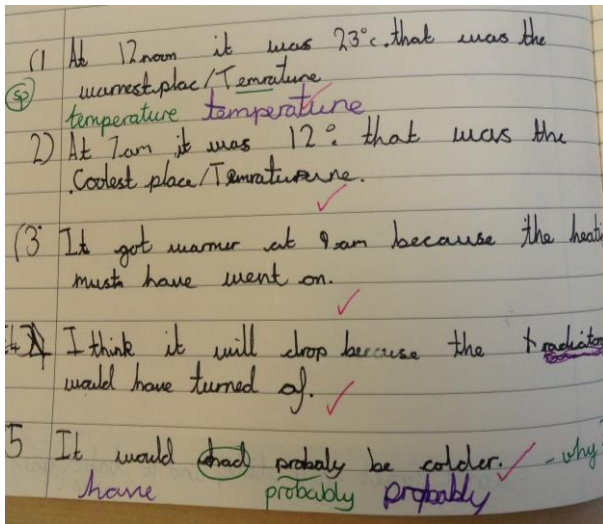 (1 At 12noon it was 23°c. that was the
sp warmest plac/Temrature
temperature temperature
2) At 7am it was 12° that was the
Coolest place/Temraturune.
(3 It got warmer at 9am because the heati
must have went on.
4 I think it will drop because the radiator
would have turned of.
5 It would had probaly be colder. - why?
have probably probably